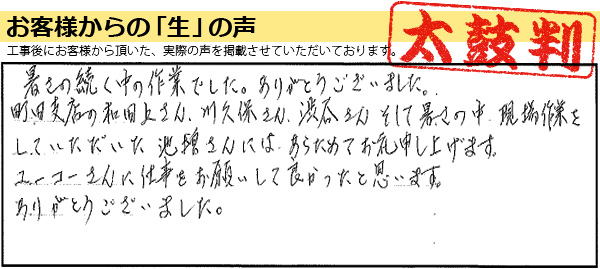 お客様からの「生」の声
工事後にお客様から頂いた、実際の声を掲載させていただいております。
太鼓判
暑さの続く中の作業でした。ありがとうございました。
町田支店の和田上さん、川久保さん、渋谷さん そして暑さの中 現場作業を
していただいた 池増さんには あらためてお礼申し上げます。
ユーコーさんに仕事をお願いして良かったと思います。
ありがとうございました。